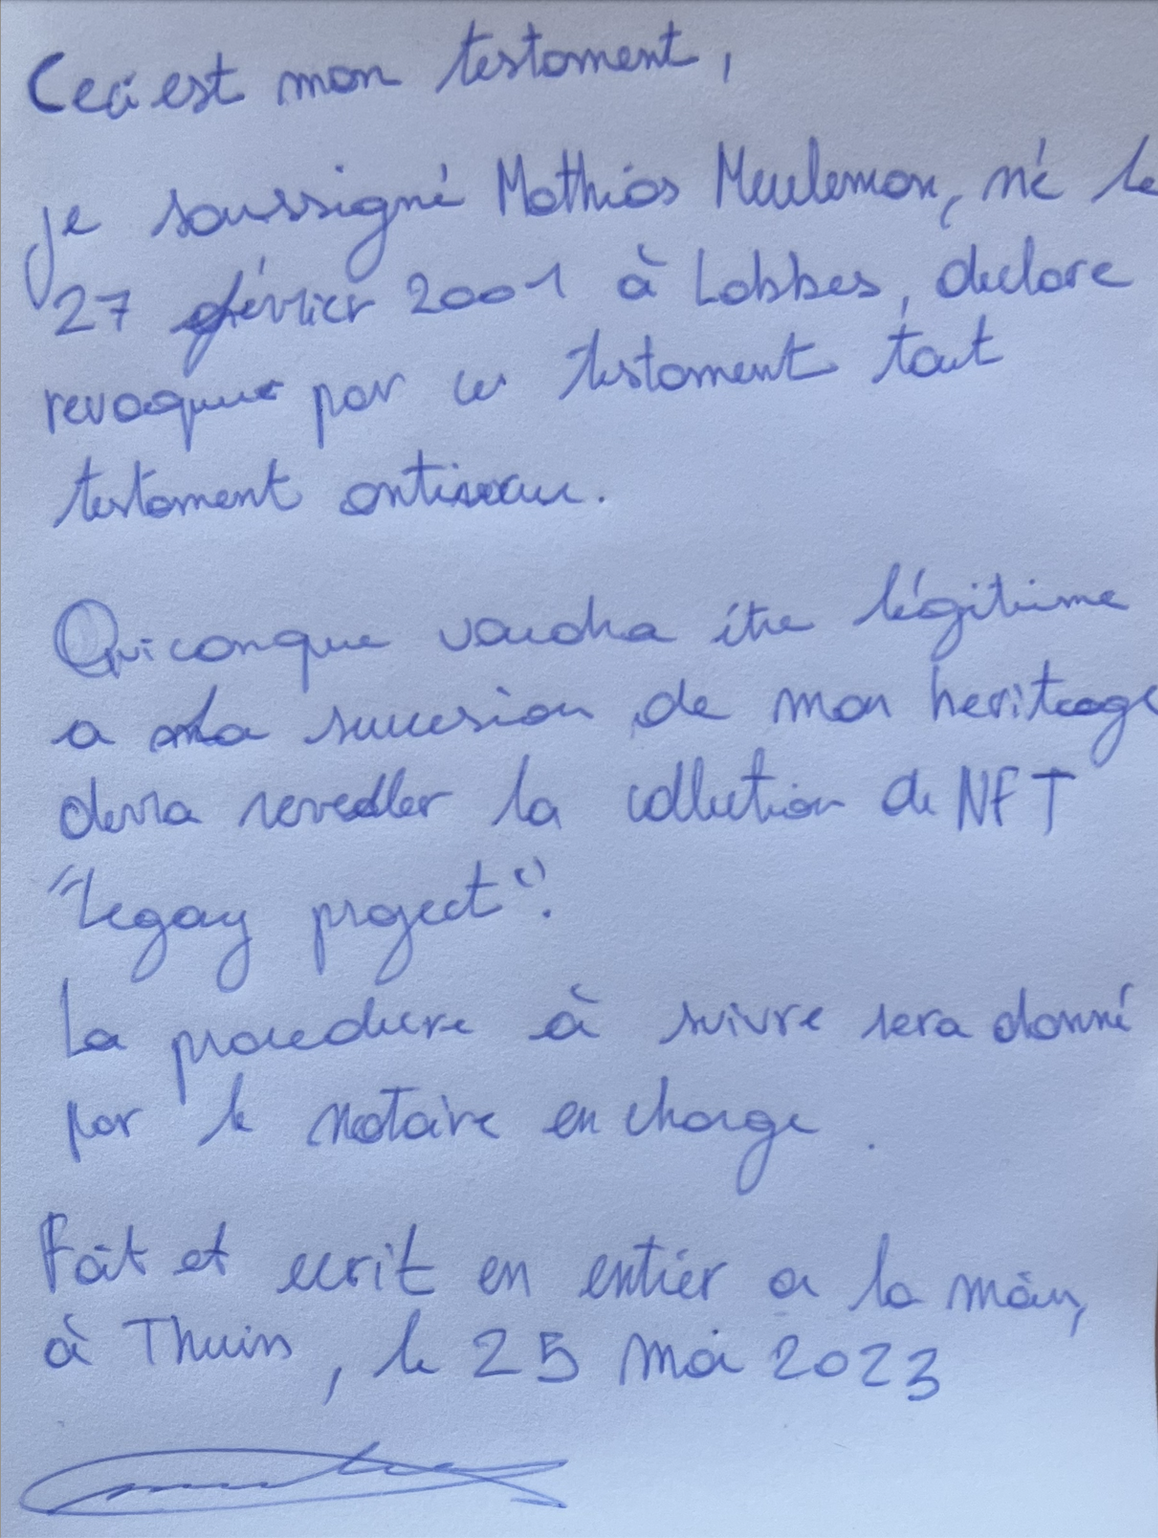 Ceci est mon testament,
je soussigné Mathias Meuleman, né le
27 février 2001 à Lobbes, declare
revoquer par ce testament tout
testament
Quiconque voudra être légitime
a la succesion de mon heriteage
devra reveller la collection de NFT
"Legay project".
La procedure à suivre sera donné
par le notaire en charge.
Fait et ecrit en entier a la main,
à Thuin, le 25 mai 2023